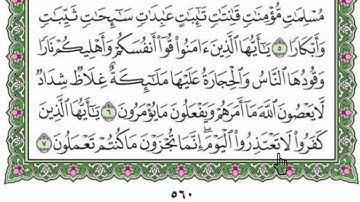 مُسْلِمَٰتٍ مُّؤْمِنَٰتٍ قَٰنِتَٰتٍ تَٰٓئِبَٰتٍ عَٰبِدَٰتٍ سَٰٓئِحَٰتٍ ثَيِّبَٰتٍ
وَأَبْكَارًا ٥ يَٰٓأَيُّهَا ٱلَّذِينَ ءَامَنُوا۟ قُوٓا۟ أَنفُسَكُمْ وَأَهْلِيكُمْ نَارًا
وَقُودُهَا ٱلنَّاسُ وَٱلْحِجَارَةُ عَلَيْهَا مَلَٰٓئِكَةٌ غِلَاظٌ شِدَادٌ
لَّا يَعْصُونَ ٱللَّهَ مَآ أَمَرَهُمْ وَيَفْعَلُونَ مَا يُؤْمَرُونَ ٦ يَٰٓأَيُّهَا ٱلَّذِينَ
كَفَرُوا۟ لَا تَعْتَذِرُوا۟ ٱلْيَوْمَ ۖ إِنَّمَا تُجْزَوْنَ مَا كُنتُمْ تَعْمَلُونَ ٧
٥٦٠